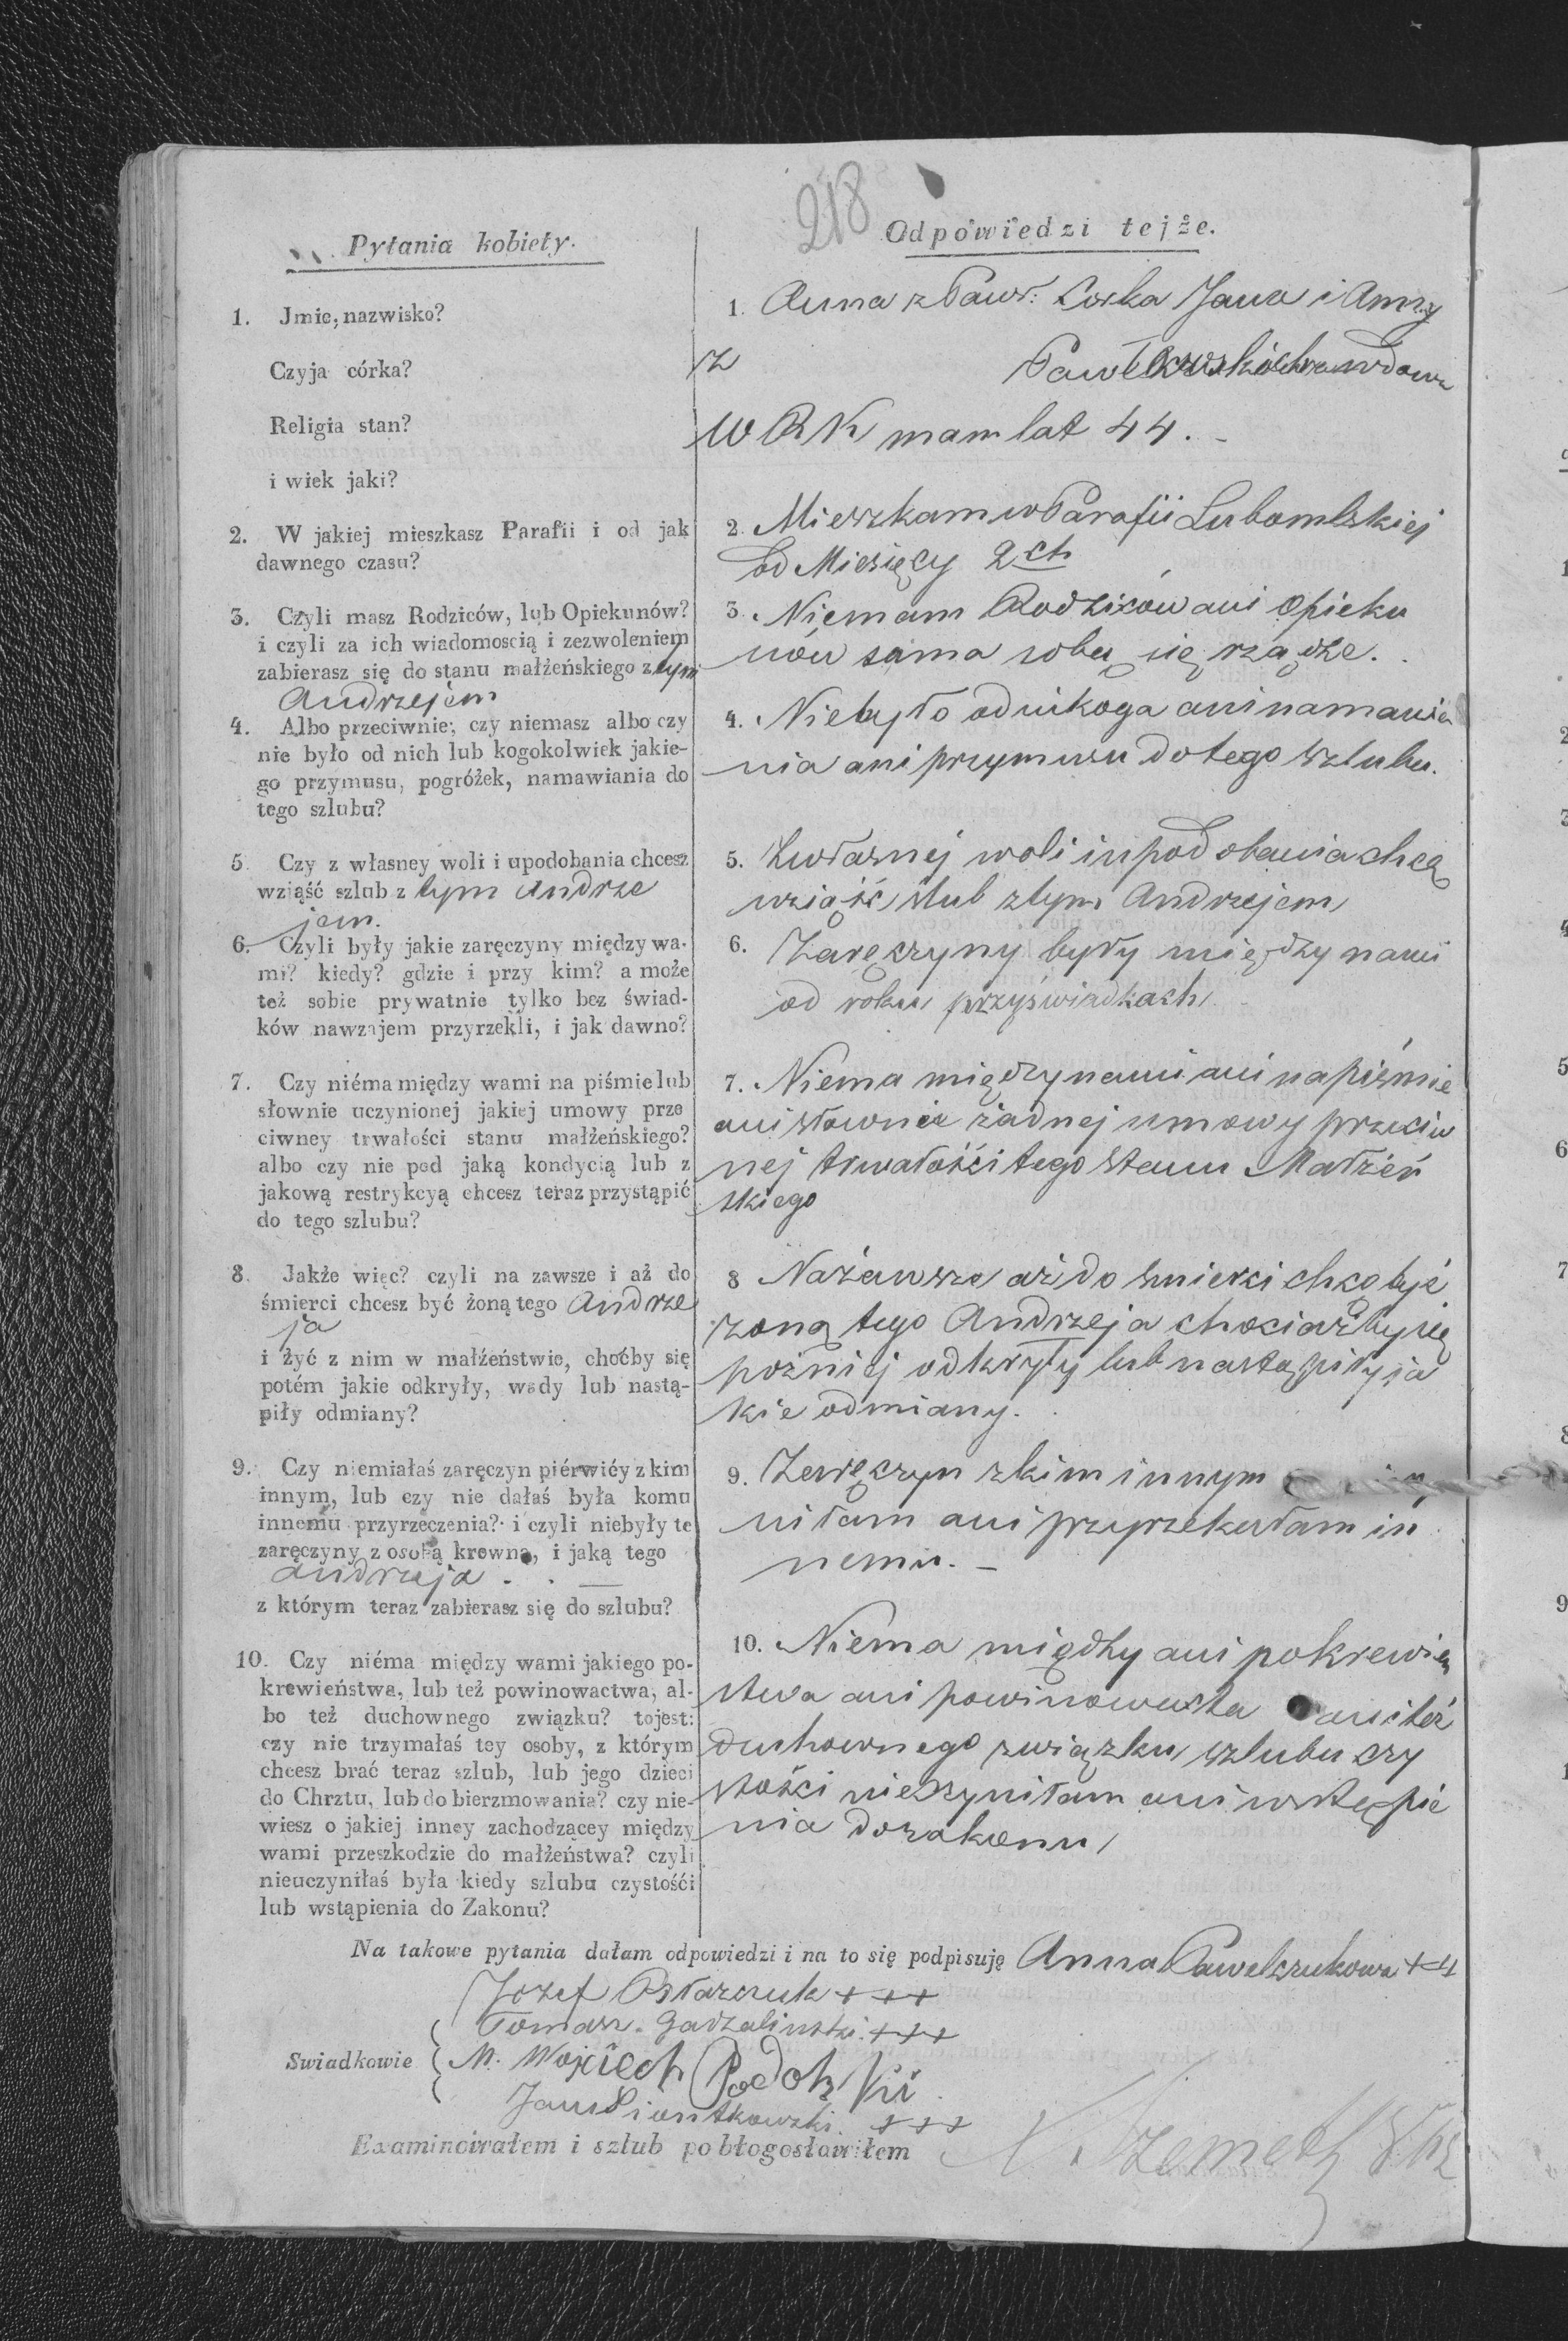 218
Pytania kobiety.
Odpowiedzi tejże.
1. Jmie, nazwisko?
Czyja córka?
Religia stan?
i wiek jaki?
1. Anna z Pawł: Corka Jana i Anny
z Pawełczuskich wdowa
W R K mam lat 44. -
2. W jakiej mieszkasz Parafii i od jak
dawnego czasu?
2. Mieszkam w Parafii Lubomlskiej
od Miesięcy 2ch
3. Czyli masz Rodziców, lub Opiekunów?
i czyli za ich wiadomoscią i zezwoleniem
zabierasz się do stanu małżeńskiego z tym
Andrzejem
3. Niemam Rodzicow ani Opieku
nów sama sobą się rządze.
4. Albo przeciwnie; czy niemasz albo czy
nie było od nich lub kogokolwiek jakie-
go przymusu, pogróżek, namawiania do
tego szlubu?
4. Niebyło od nikoga ani namawia
nia ani przymusu do tego szlubu.
5. Czy z własney woli i upodobania chcesz
wziąść szlub z tym Andrze
jem.
5. Zwłasnej woli i upodobania chcą
wziąść slub z tym Andrzejem
6. Czyli były jakie zaręczyny między wa-
mi? kiedy? gdzie i przy kim? a może
też sobie prywatnie tylko bez świad-
ków nawzajem przyrzekli, i jak dawno?
6. Zaręczyny były między nami
od roku przyświadkach
7. Czy niéma między wami na piśmie lub
słownie uczynionej jakiej umowy prze
ciwney trwałości stanu małżeńskiego?
albo czy nie pod jaką kondycią lub z
jakową restrykcyą chcesz teraz przystąpić
do tego szlubu?
7. Niema między nami ani napiśmie
ani słownie żadnej umowy przeciw
nej trwałości tego stanu Małżeń
skiego
8. Jakże więc? czyli na zawsze i aż do
śmierci chcesz być żoną tego Andrze
ja
i żyć z nim w małżeństwie, choćby się
potém jakie odkryły, wady lub nastą-
piły odmiany?
8 Nazawsze aż do smierci chcą być
zoną tego Andrzeja chociażby się
pożniej odkryły lub nastąpiły ja
kie odmiany.
9. Czy niemiałaś zaręczyn piérwićy z kim
innym, lub czy nie dałaś była komu
innemu przyrzeczenia? i czyli niebyły te
zaręczyny z osobą krewną, i jaką tego
Andrzeja . . —
z którym teraz zabierasz się do szlubu?
9. Zaręczyn z kim innym
niłam ani przyrzekałam in
nemu. -
10. Czy niéma między wami jakiego po-
krewieństwa, lub też powinowactwa, al-
bo też duchownego związku? tojest:
czy nie trzymałaś tey osoby, z którym
chcesz brać teraz szlub, lub jego dzieci
do Chrztu, lub do bierzmowania? czy nie-
wiesz o jakiej inney zachodzącey między
wami przeszkodzie do małżeństwa? czyli
nieuczyniłaś była kiedy szlubu czystośći
lub wstąpienia do Zakonu?
10. Niema między ani pokrewień
stwa ani powinowactwa ani też
duchownego związku szlubu czy
stości nieczyniłam ani wstąpie
nia do zakonu
Na takowe pytania dałam odpowiedzi i na to się podpisuję Anna Pawelczukowa +++
Jozef Ostarczuk +++
Tomasz Gadzalinski. +++
Swiadkowie M. Wojciech Podolski
Jan Piontkowski. +++
Examinowałem i szlub pobłogosławiłem